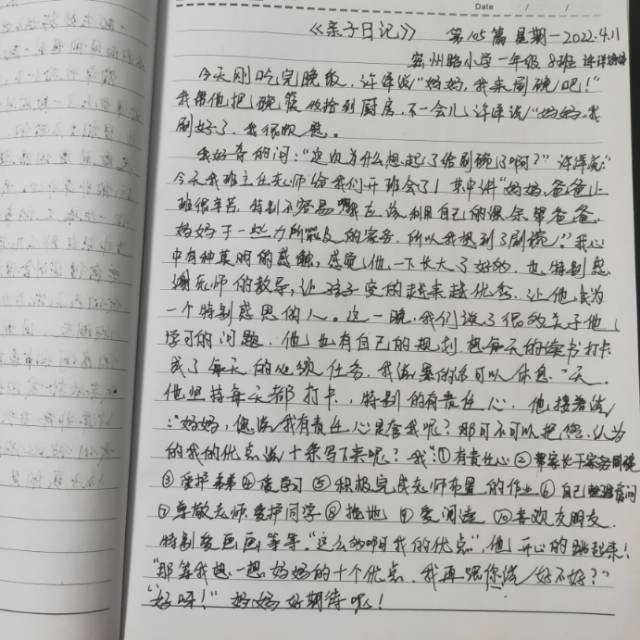 Date / /
《亲子日记》 第105篇 星期一 2022.4.11
路小学一年级8班 许译
今天刚吃完晚饭，许译说“妈妈，我来刷碗吧！”
我帮他把碗筷收拾到厨房，不一会儿许译说“妈妈我
刷好了，我很欣慰。
我好奇的问：“宝为什么想起了给刷碗了啊？”许译说：“
今天我班主任老师给我们开班会了！其中讲“妈妈、爸爸上
班很辛苦，特别不容易，我应该利用自己的课余帮爸爸、
妈妈干一些力所能及的家务，所以我想到了刷碗。”我心
中有种莫明的感触，感觉他一下长大了好多，也特别感
谢老师的教导，让孩子变的越来越优秀，让他成为
一个特别感恩的人。这一晚，我们说了很多关于他
学习的问题，他也有自己的规划，想每天的读书打卡
成了每天的必须任务，我说累的话可以休息一天，
他坚持每天都打卡，特别的有责任心，他接着说
：“妈妈，您说我有责任心是吗我呢？那可不可以把您认为
的我的优点说十条写下来呢？我：①有责任心 ②帮家长干家务
③爱护 ④爱 ⑤积极完成老师布置的作业 ⑥自己
⑦尊敬老师、爱护同学 ⑧拖地 ⑨爱 ⑩喜欢交朋友、
特别爱画画等等。“这么多啊我的优点”，他开心的跳起来！
“那等我想一想妈妈的十个优点，我再跟你说好不好？”
“好呀！” 妈妈好期待呢！